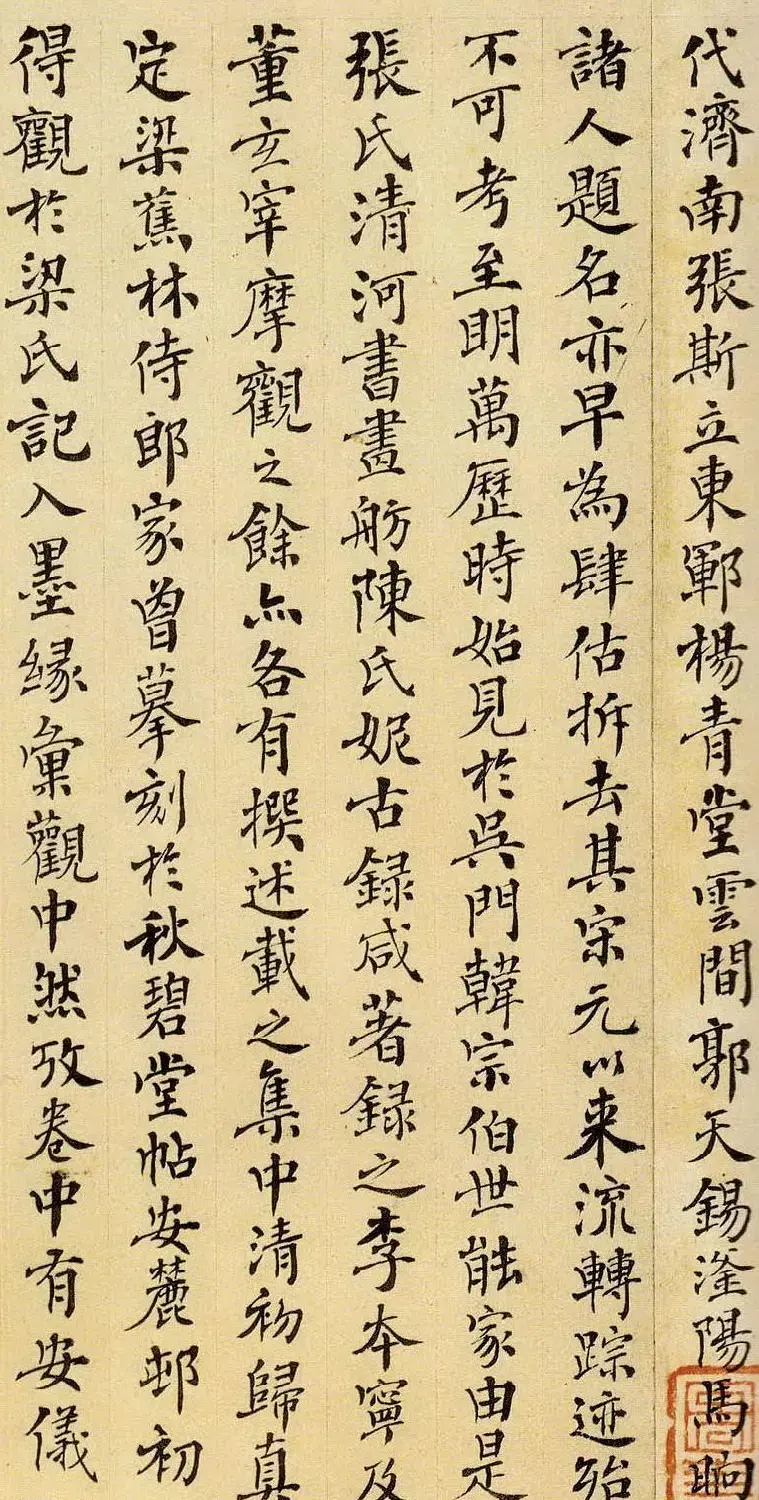 代濟南張斯立東鄆楊青堂雲間郭天錫滏陽馬晌
諸人題名亦早為肆估拆去其宋元以来流轉踪迹殆
不可考至明萬歷時始見於吳門韓宗伯世能家由是
張氏清河書畫舫陳氏妮古録咸著録之李本寧及
董玄宰摩觀之餘亦各有撰述載之集中清初歸真
定梁蕉林侍郎家曾摹刻於秋碧堂帖安麓邨初
得觀於梁氏記入墨緣彙觀中然攷卷中有安儀